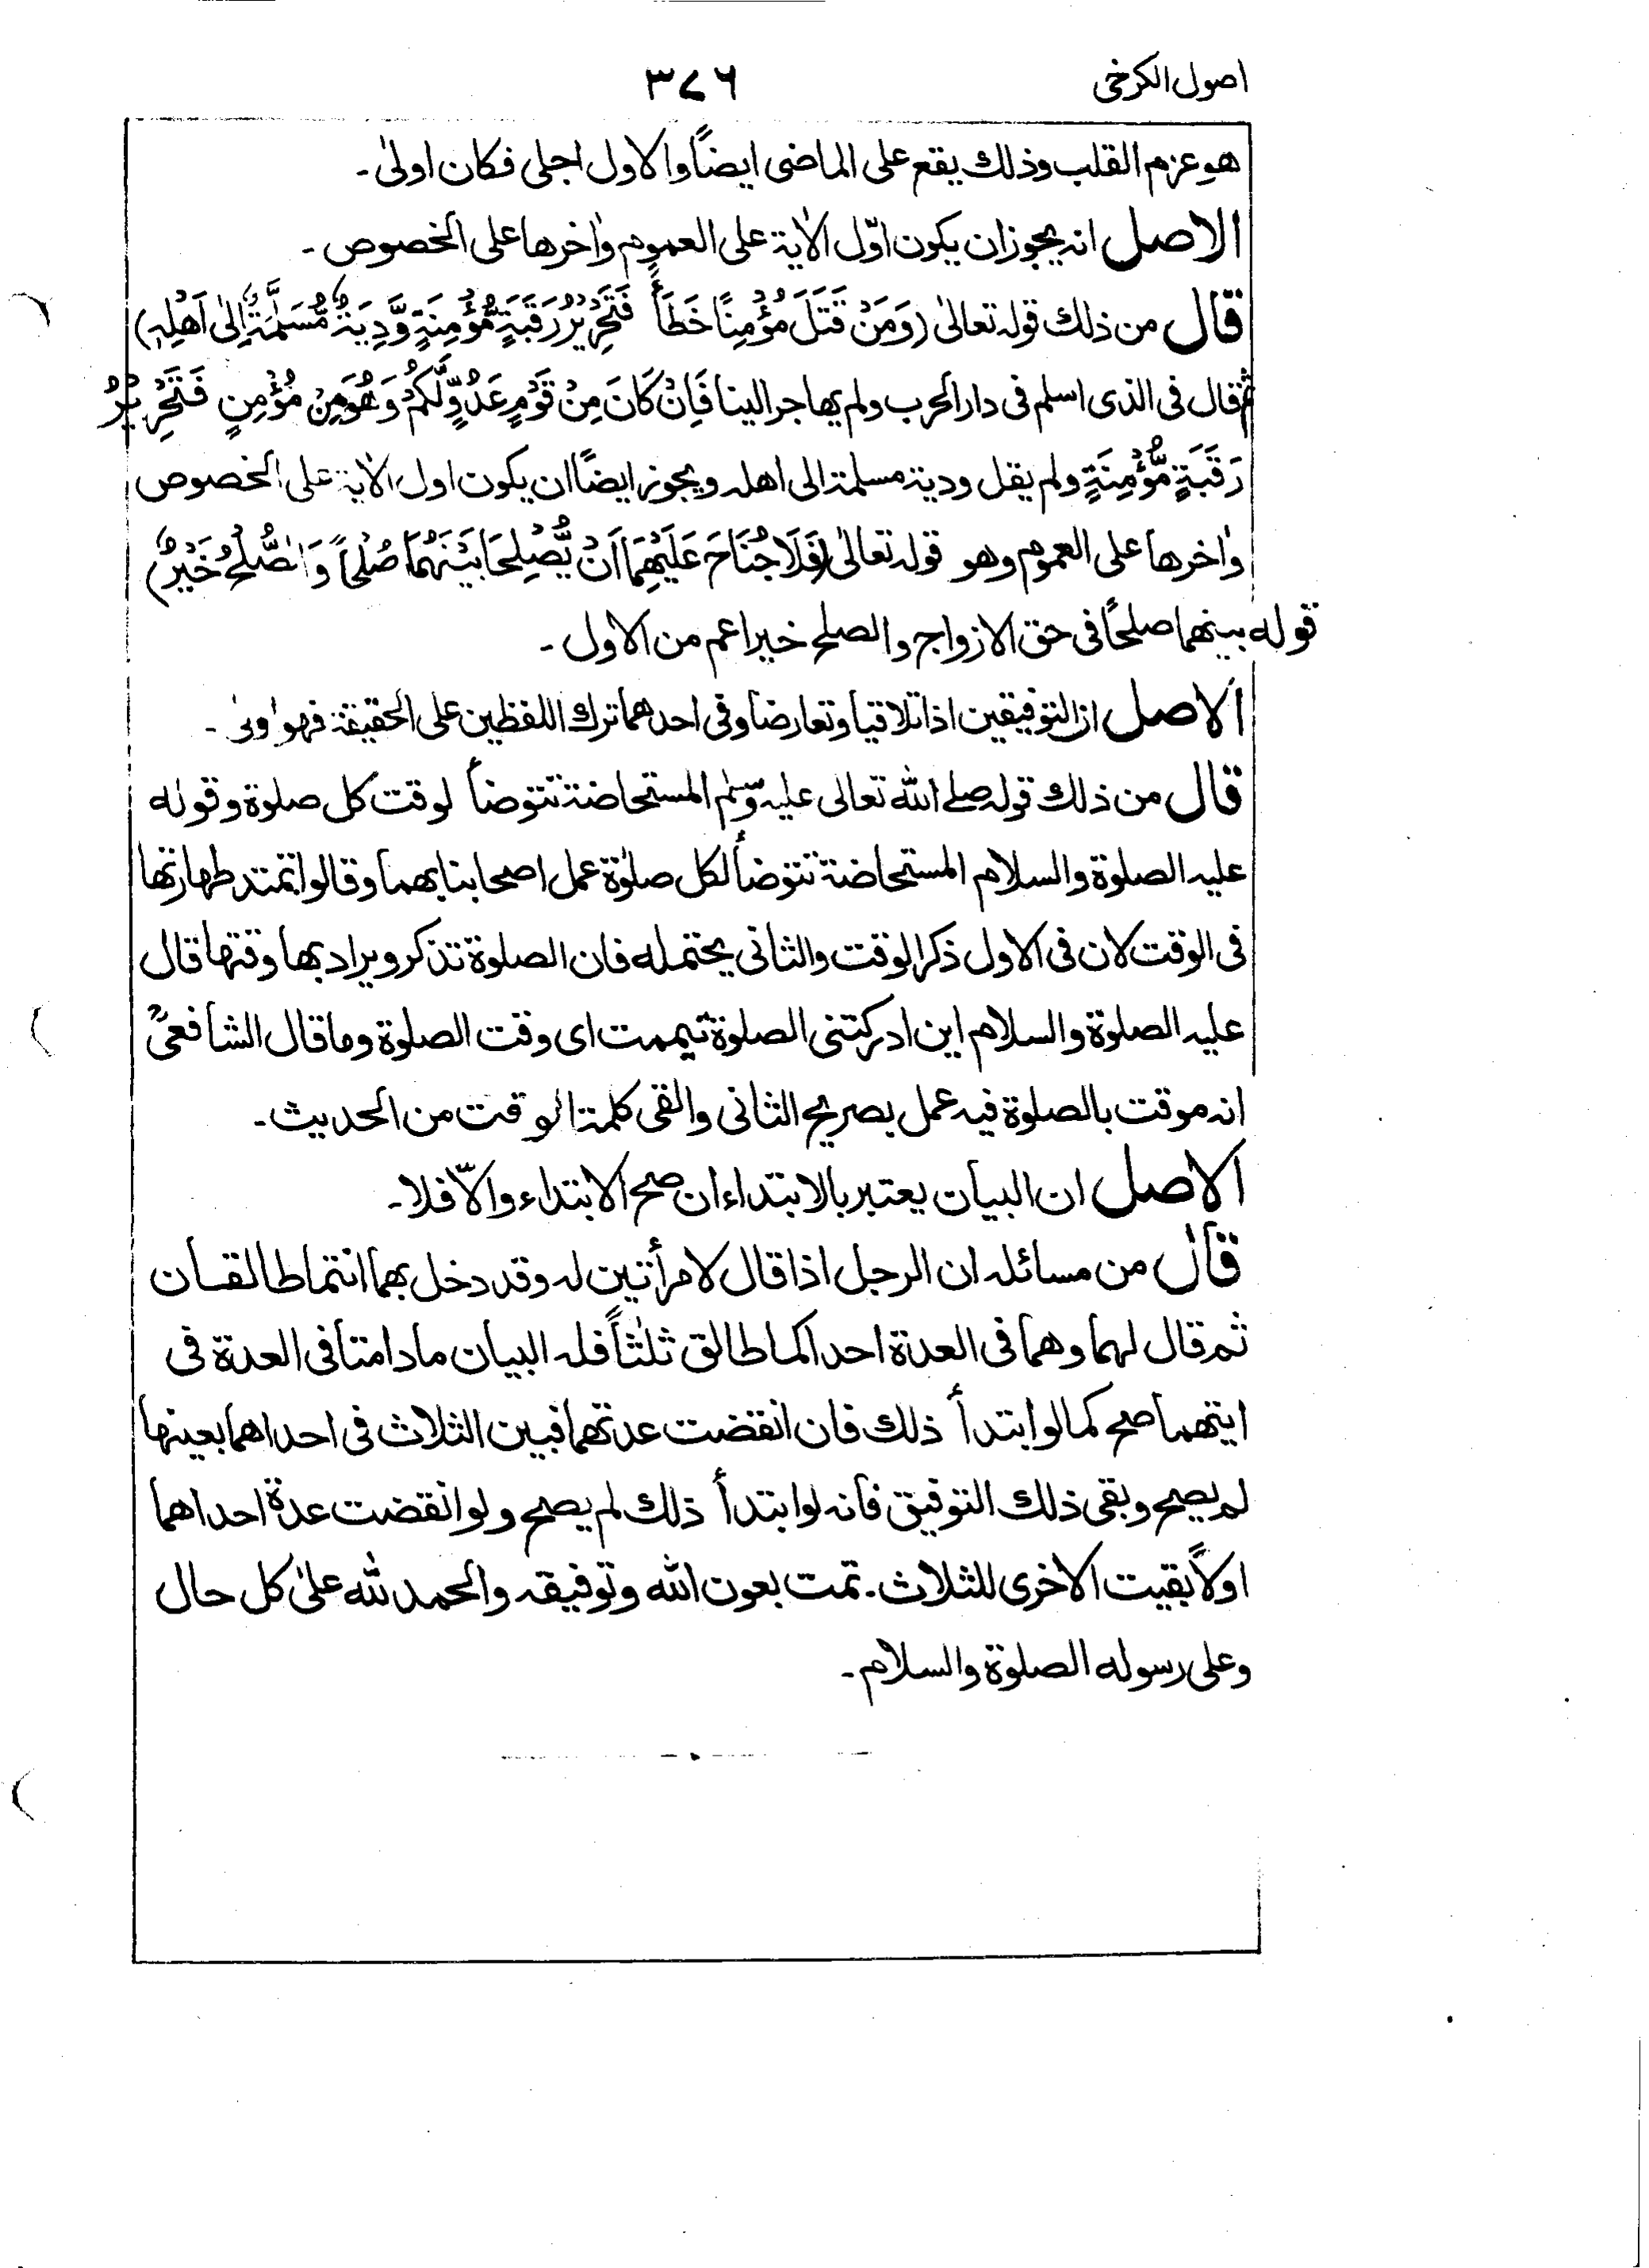 اصول الكرخى
٣٧٦
هو عزم القلب وذلك يقع على الماضى ايضاً والاول اجلى فكان اولىٰ۔
الاصل انه يجوز ان يكون اوّل الاٰية على العموم واٰخرها على الخصوص ۔
قال من ذلك قوله تعالىٰ (وَمَنْ قَتَلَ مُؤْمِنًا خَطَأً فَتَحْرِيْرُ رَقَبَةٍ مُّؤْمِنَةٍ وَّدِيَةٌ مُّسَلَّمَةٌ اِلىٰ اَهْلِهٖ)
ثم قال فى الذى اسلم فى دار الحرب ولم يهاجر الينا فَاِنْ كَانَ مِنْ قَوْمٍ عَدُوٍّ لَّكُمْ وَهُوَ مِنْ مُؤْمِنٍ فَتَحْرِيْرُ
رَقَبَةٍ مُّؤْمِنَةٍ ولم يقل ودية مسلمة الى اهله ويجوز ايضاً ان يكون اول الاٰية على الخصوص
واٰخرها على العموم وهو قوله تعالىٰ (فَلَا جُنَاحَ عَلَيْهِمَا اَنْ يُّصْلِحَا بَيْنَهُمَا صُلْحاً وَالصُّلْحُ خَيْرٌ)
قوله بينهما صلحاً فى حق الازواج والصلح خير اعم من الاول ۔
الاصل ان التوفيقين اذا تلاقيا وتعارضا وفى احدهما ترك اللفظين على الحقيقة فهو اولىٰ ۔
قال من ذلك قوله صلے الله تعالى عليه وسلم المستحاضة تتوضأ لوقت كل صلوة وقوله
عليه الصلوة والسلام المستحاضة تتوضأ لكل صلوٰة عمل اصحابنا بهما وقالوا تمتد طهارتها
فى الوقت لان فى الاول ذكر الوقت والثانى يحتمله فان الصلوة تذكر ويراد بها وقتها قال
عليه الصلوة والسلام اين ادركتنى الصلوة تيممت اى وقت الصلوة وما قال الشافعىؒ
انه موقت بالصلوة فيه عمل بصريح الثانى والقى كلمة الوقت من الحديث۔
الاصل ان البيان يعتبر بالابتداء ان صح الابتداء والّا فلا۔
قال من مسائله ان الرجل اذا قال لامرأتين له وقد دخل بهما انتما طالقسان
ثم قال لهما وهما فى العدة احداكما طالق ثلٰثاً فله البيان ما دامتا فى العدة فى
ايتهما صح كما لو ابتدأ ذلك فان انقضت عدتهما فبين الثلاث فى احداهما بعينها
لم يصح وبقى ذلك التوفيق فانه لو ابتدأ ذلك لم يصح ولو انقضت عدة احداهما
اولاً بقيت الاخرى للثلاث۔ تمت بعون الله وتوفيقه والحمد لله علىٰ كل حال
وعلى رسوله الصلوة والسلام۔